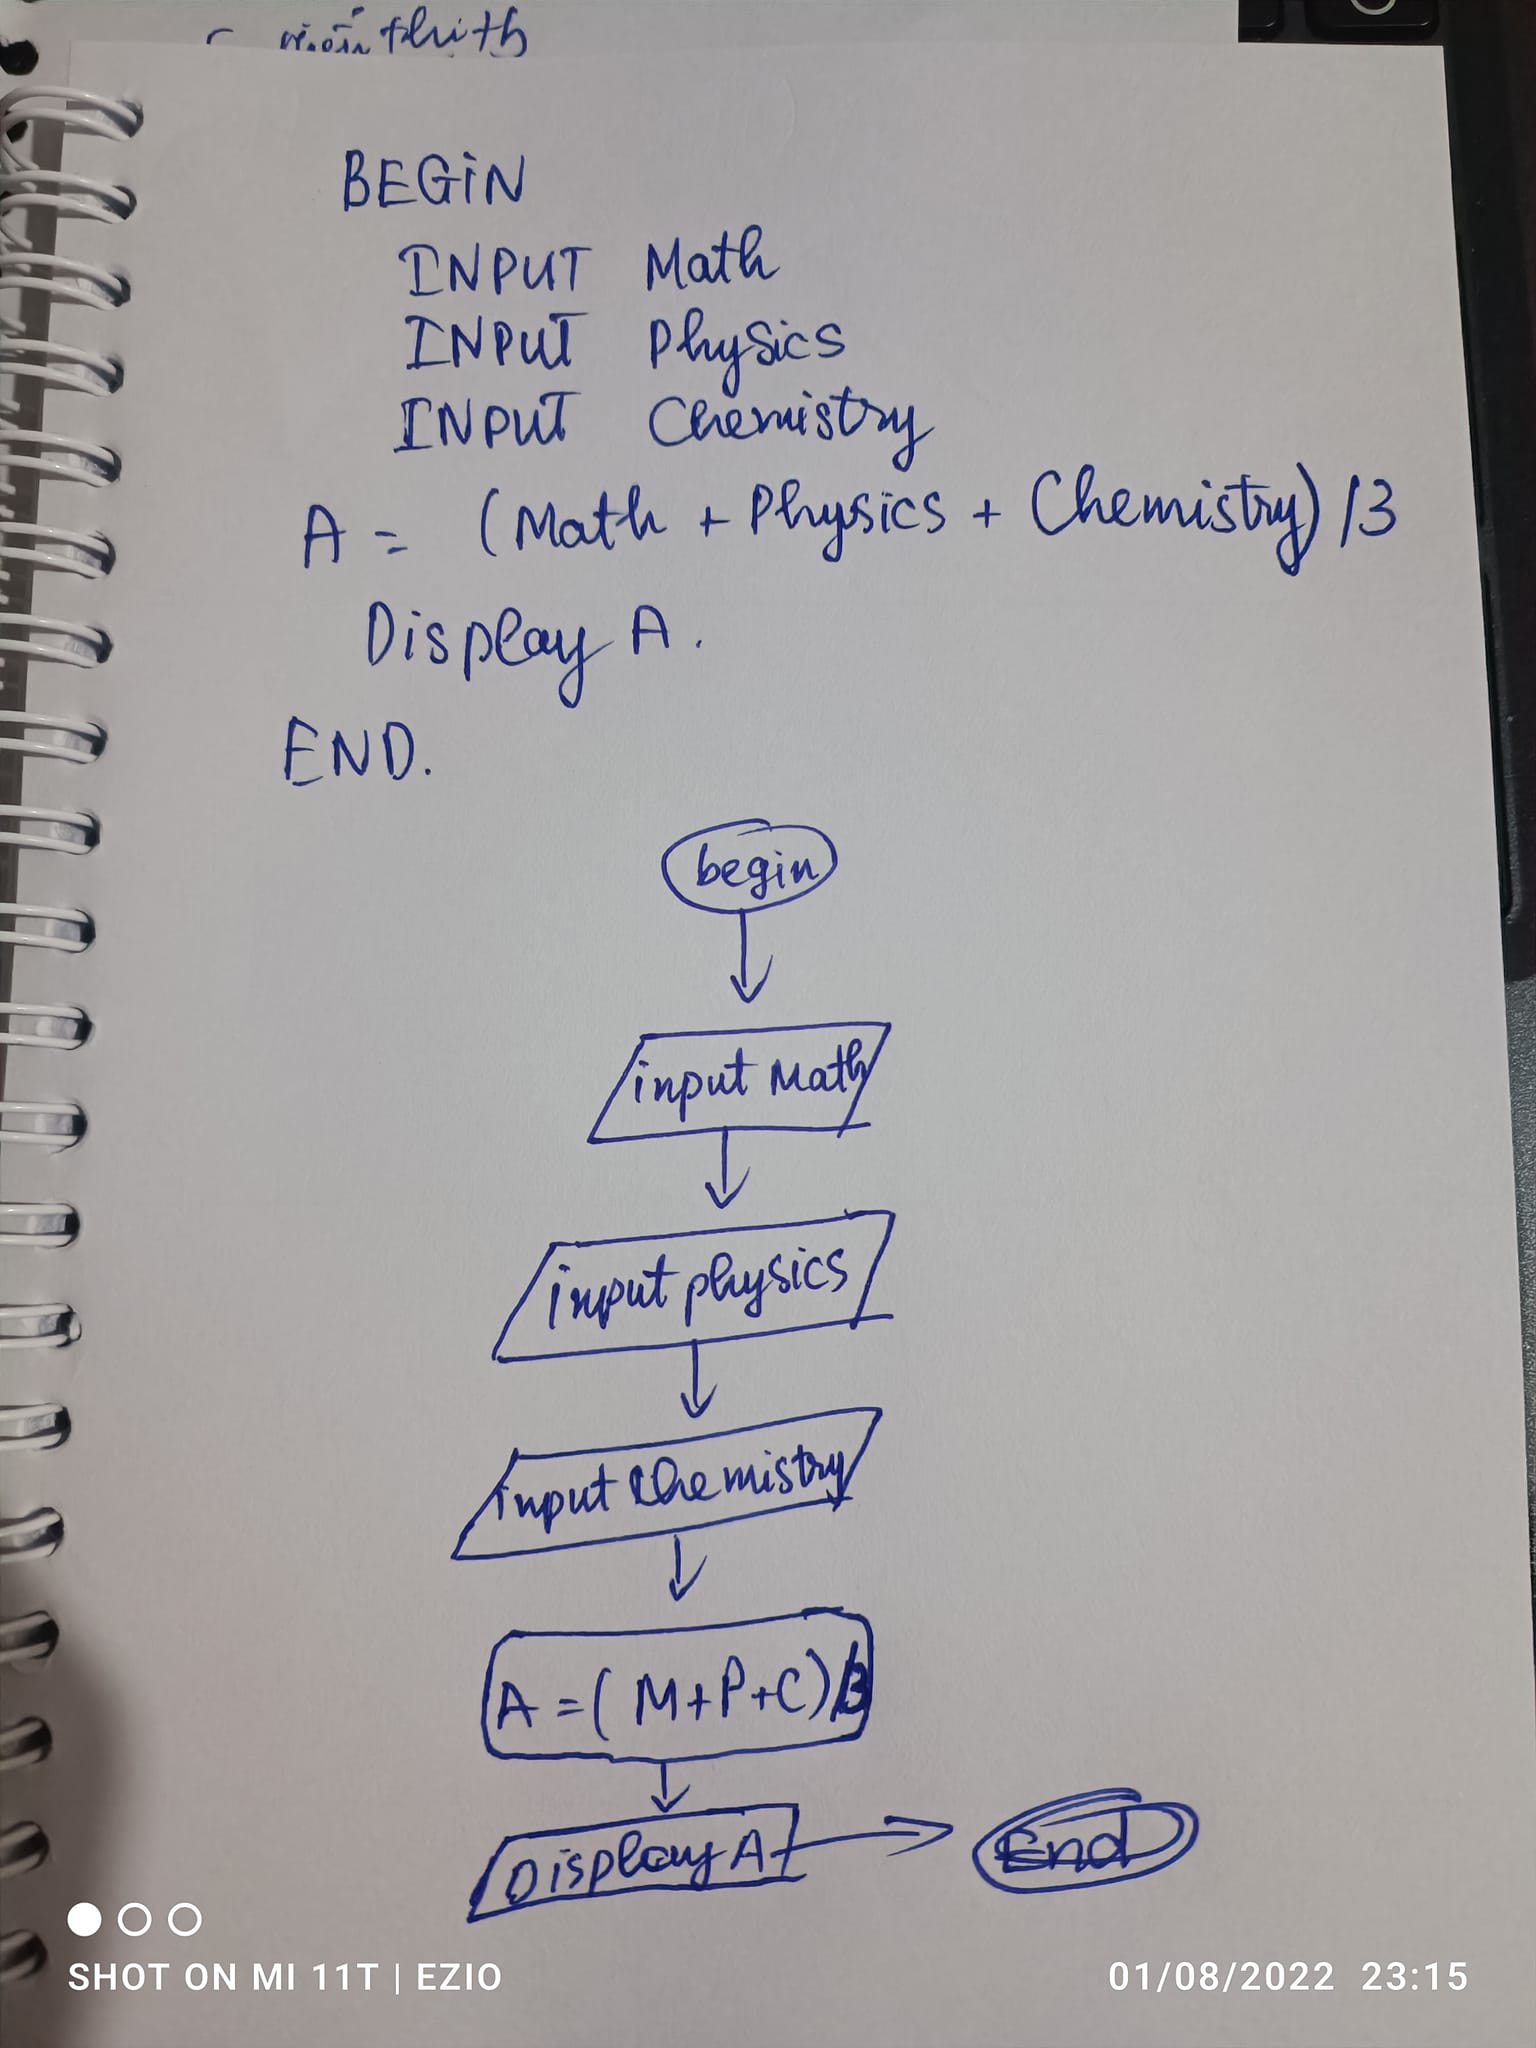 BEGiN
INPUT Math
INPUT Physics
INPUT Chemistry
A = (Math + Physics + Chemistry) /3
Display A.
END.
begin
input Math
input physics
input Chemistry
A = ( M+P+C)/3
Display A
End
SHOT ON MI 11T | EZIO
01/08/2022 23:15